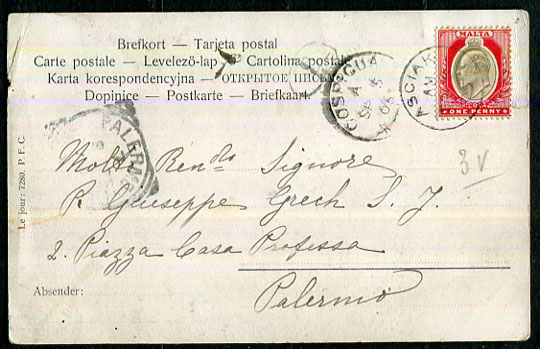 Brefkort — Tarjeta postal
Carte postale — Levelező-lap — Cartolina postale
Karta korespondencyjna — ОТКРЫТОЕ ПИСЬМО
Dopinice — Postkarte — Briefkaart
MALTA
ONE PENNY
COSPICUA
A
SP 5
05
ASCIAK
AM
PALERMO
3V
Molto Rendo Signore
P. Giuseppe Grech S. J.
2. Piazza Casa Professa
Palermo
Absender:
Le jour: 7280. P. F. C.